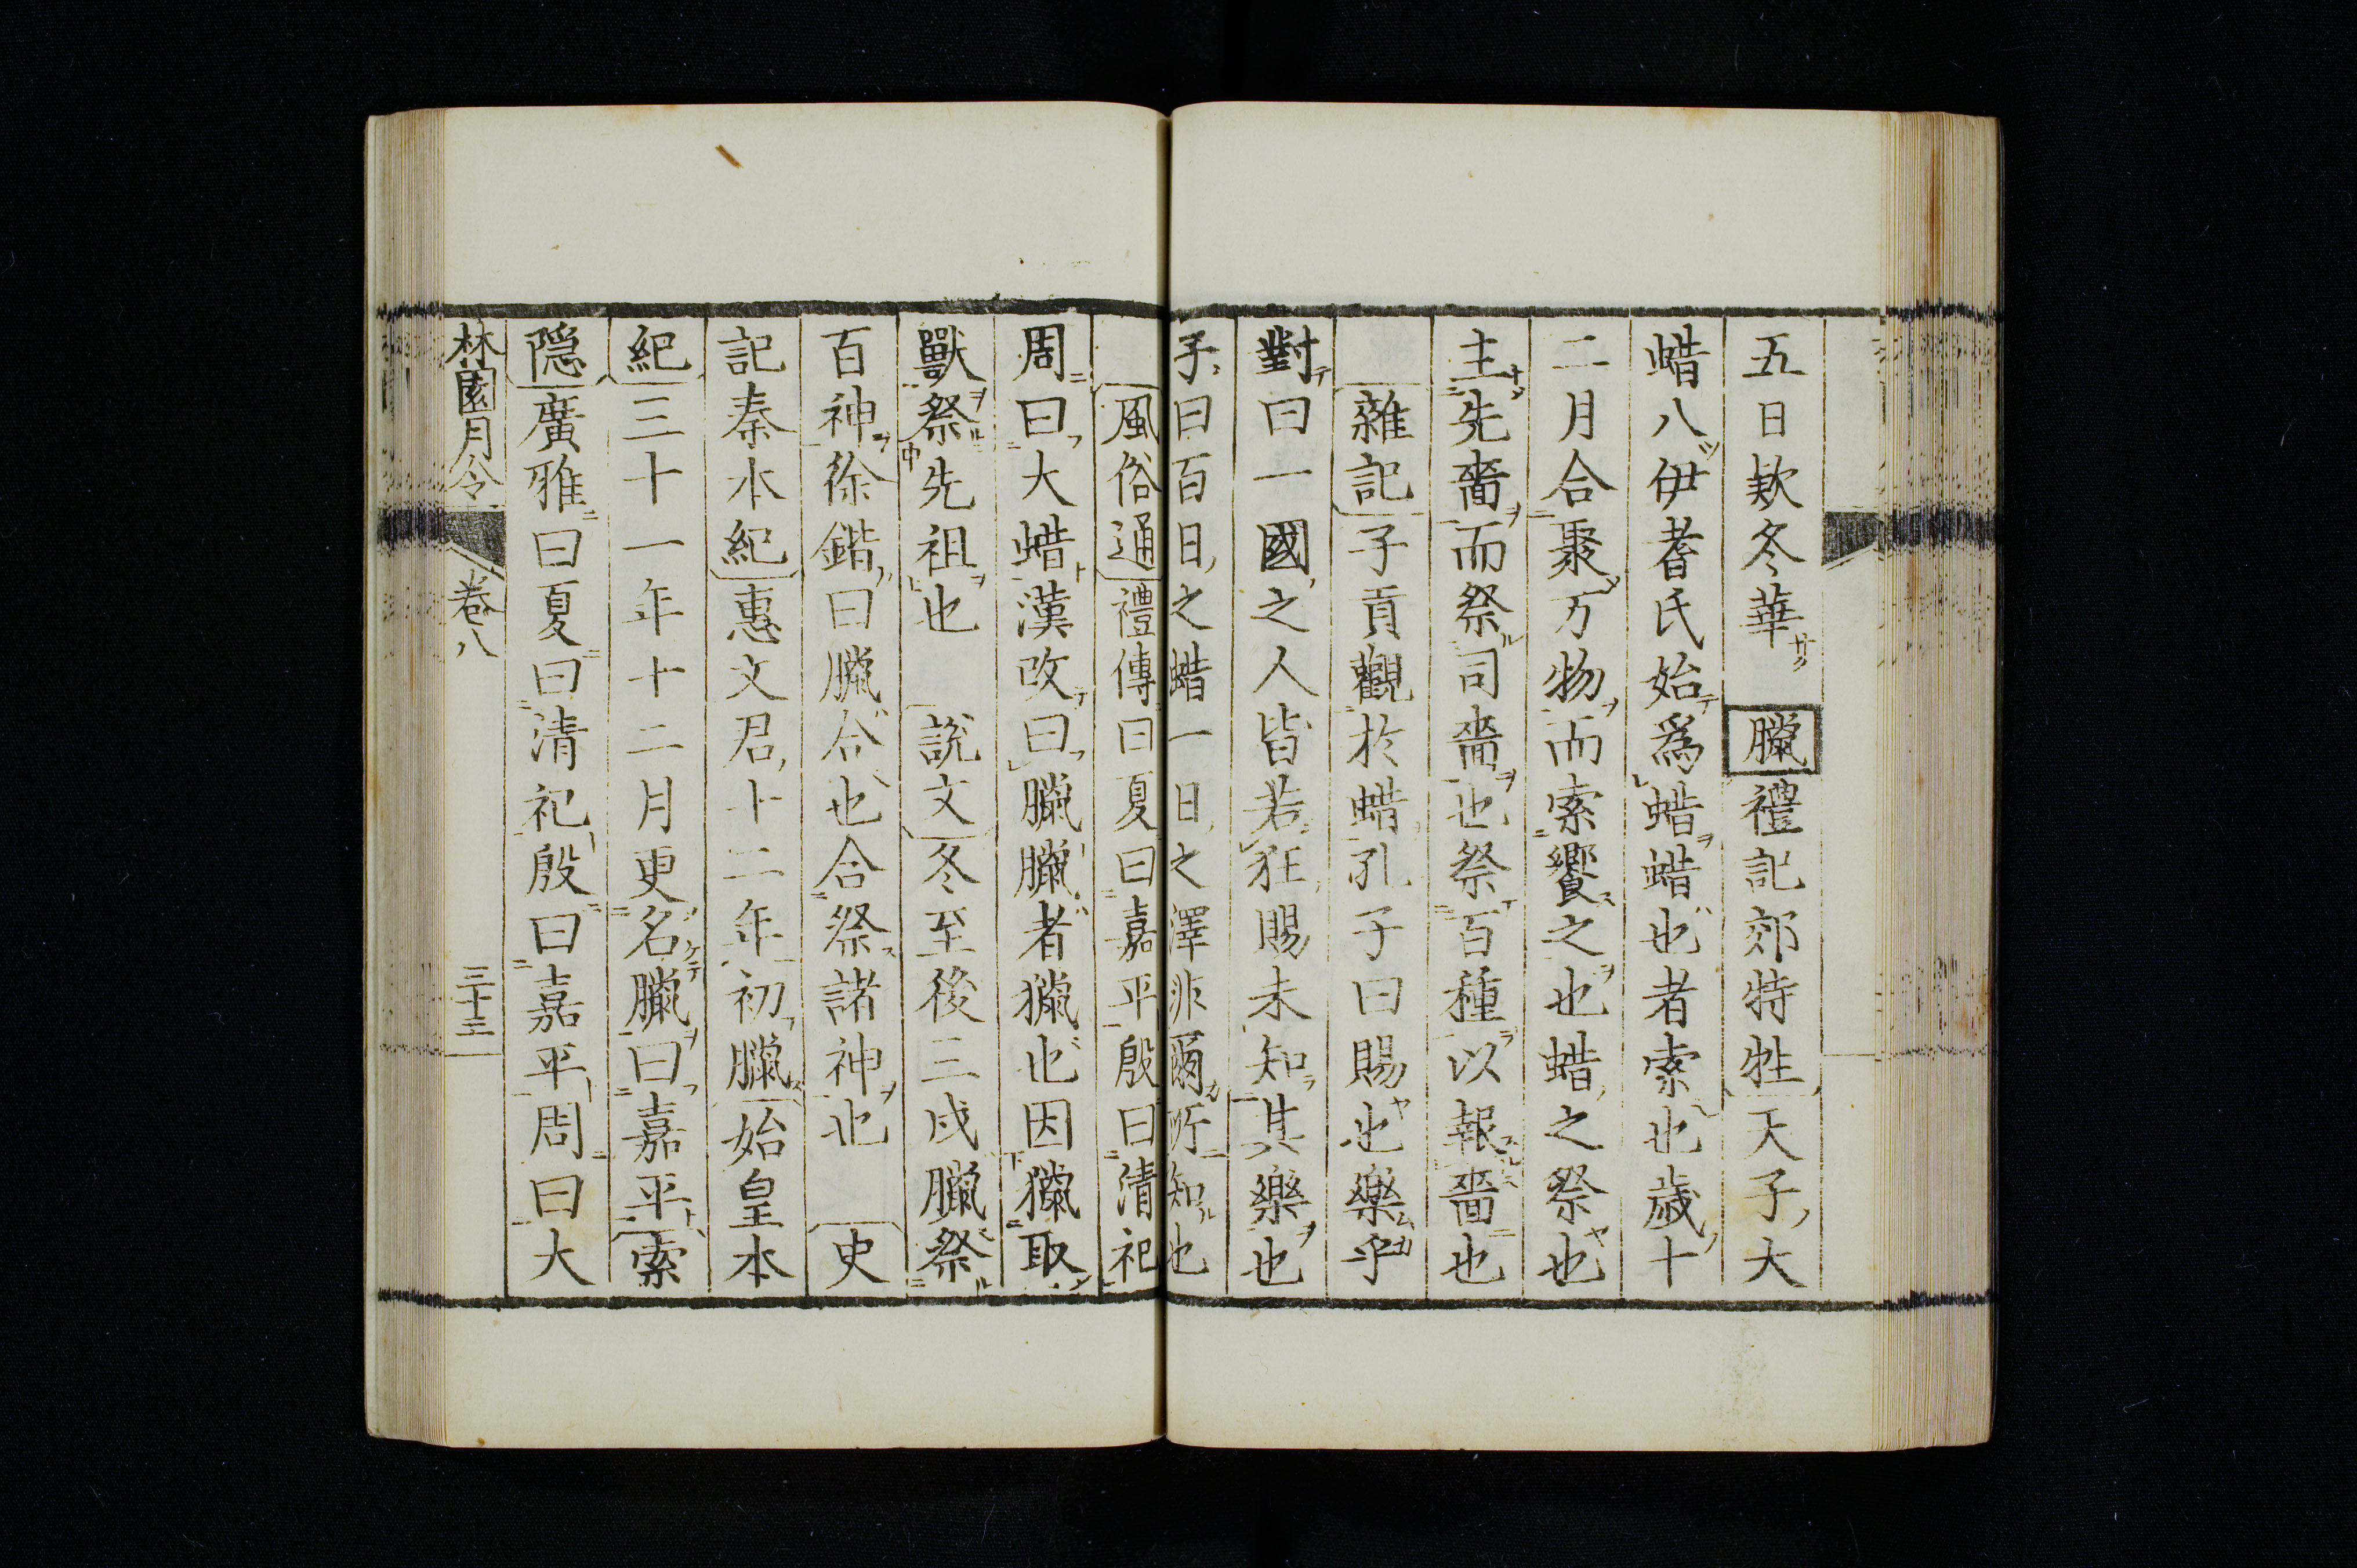 五日欵冬華サク 臘禮記郊特牲天子大
蜡八伊耆氏始爲蜡蜡也者索也歳十
二月合聚万物而索饗之也蜡之祭也
主先嗇而祭司嗇也祭百種以報嗇也
雜記子貢觀於蜡孔子曰賜也樂乎
對曰一國之人皆若狂賜未知其樂也
子曰百日之蜡一日之澤非爾所知也
風俗通禮傳曰夏曰嘉平殷曰清祀
周曰大蜡漢改曰臘臘者獵也因獵取
獸祭先祖也 説文冬至後三戌臘祭
百神徐鍇曰臘合也合祭諸神也 史
記秦本紀惠文君十二年初臘始皇本
紀三十一年十二月更名臘曰嘉平索
隠廣雅曰夏曰清祀殷曰嘉平周曰大
林園月令 卷八 三十三